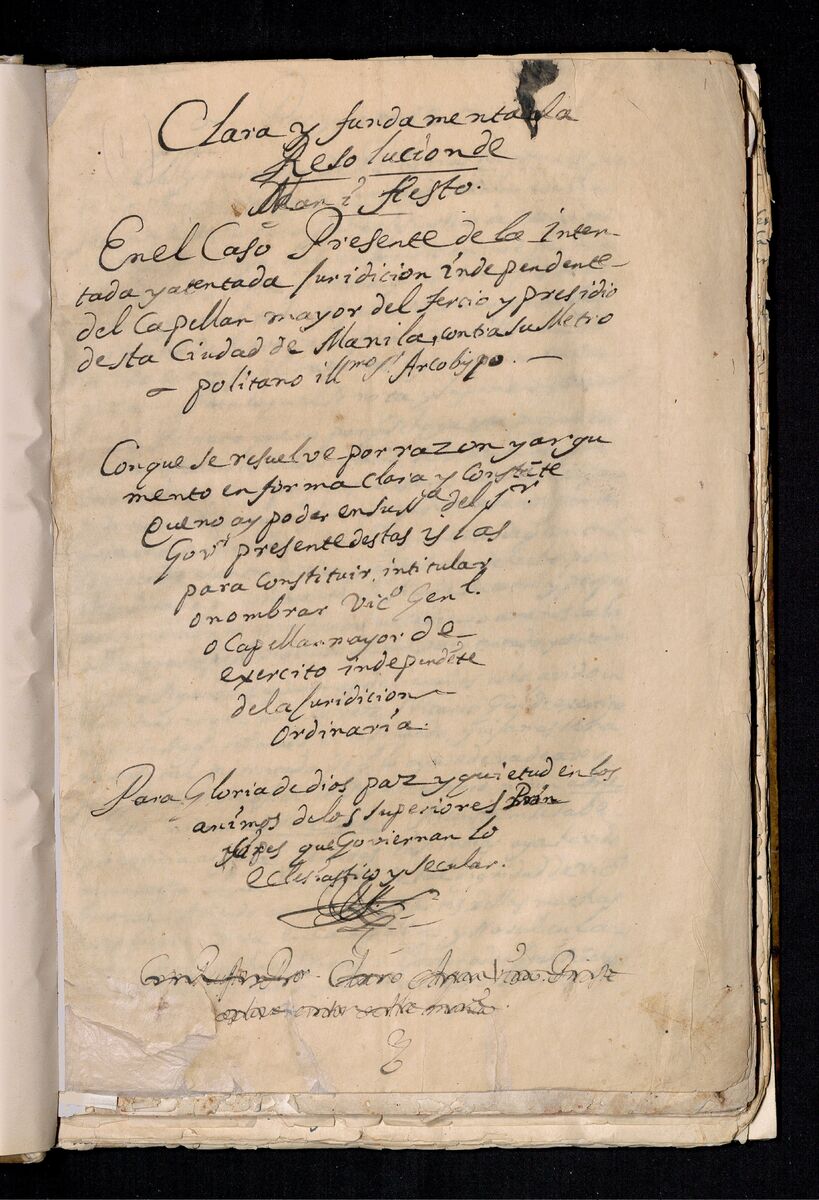 Clara y fundamentada
Resolucion de
Manifiesto.
En el Caso Presente de la inten-
tada y atentada Juridicion independente
del Capellan mayor del tercio y presidio
desta Ciudad de Manila, contra su Metro
politano illmo Sr. Arcobispo.
Con que se resuelve por razon y argu
mento en forma clara y constāte
que no ay poder en su sa del sr.
Govr presente destas islas
para constituir, intitular
o nombrar Vico Genl.
o Capellan mayor de
exercito independēte
de la Juridicion
ordinaria.
Para Gloria de dios paz y quietud en los
animos de los superiores Prin
cipes que Goviernan lo
eclesiastico y secular.